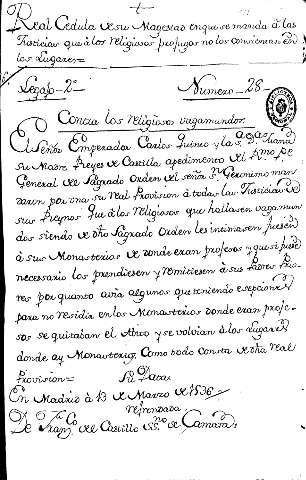 Real Cedula de su Magestad en que se manda á las
Justicias que á los religiosos profugos no los consientan en
los Lugares=
Legajo 2º Numero 28
Contra los religiosos vagamundos.
El Señor Emperador Carlos Quinto y la S.ª D.ª Juana
su Madre Reyes de Castilla apedimento del R.mo Pe
General de Sagrado Orden del señor S.n Geronimo man
daron por una su real Provision á todas las Justicias de
sus Reynos que á los religiosos que hallasen vagamun
dos siendo de dho Sagrado Orden les intimasen fuesen
á sus Monasterios de donde eran profesos y que si fuese
necesario los prendiesen y remitiesen á sus Padres Prio
res por quanto avia algunos que teniendo esepciones
para no residir en los Monasterios donde eran profe-
sos se quitaban el Avito y se volvian á los Lugares
donde ay Monasterios, Como todo consta de dha real
Provision= Su Data
En Madrid à 13 de Marzo de 1536
refrendada
De Fran.co del Castillo SS.no de Camara